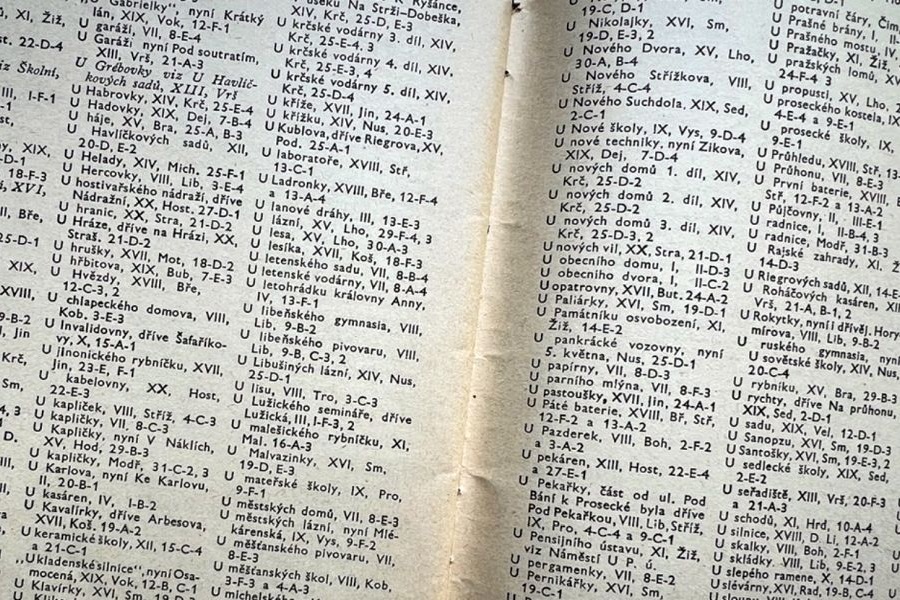 Xl, Žiž,
st. 22-D-4
iz Školní,
III, I-F-1
XIX,
D-1
18-F-3
XVI,
II, Bře,
25-D-1
XIX,
XVIII,
9-B-2
I, Jin
Krč,
Sm,
4, 3
D.
U „Gabrielky“, nyní Krátký
lán, XIX, Vok, 12-F-1
U garáží, VII, 8-E-4
U Garáží nyní Pod soutratím,
XIII, Vrš, 21-A-3
U Grébovky viz U Havlíč-
kových sadů, XIII, Vrš
U Habrovky, XIV, Krč, 25-E-4
U Hadovky, XIX, Dej, 7-B-4
U háje, XV, Bra, 25-A, B-3
U Havlíčkových sadů, XII,
20-D, E-2
U Helady, XIV, Mich. 25-F-1
U Hercovky, VIII, Lib, 3-E-4
U hostivařského nádraží, dříve
Nádražní, XX, Host, 27-D-1
U hranic, XX, Stra, 21-D-2
U Hráze, dříve na Hrázi, XX,
Straš, 21-D-2
U hrušky, XVII, Mot, 18-D-2
U hřbitova, XIX, Bub, 7-E-3
U Hvězdy, XVIII, Bře,
12-C-3, 2
U chlapeckého domova, VIII,
Kob. 3-E-3
U Invalidovny, dříve Šafaříko-
vy, X, 15-A-1
U jinonického rybníčku, XVII,
Jin, 23-E, F-1
U kabelovny, XX, Host,
22-E-3
U kapliček, VIII, Stříž, 4-C-3
U kapličky, VII, 8-C-3
U Kapličky, nyní V Náklích,
XV, Hod, 29-B-3
U kapličky, Modř, 31-C-2, 3
U Karlova, nyní Ke Karlovu,
II, 20-B-1
U kasáren, IV, I-B-2
U Kavalírky, dříve Arbesova,
XVII, Koš. 19-A-2
U keramické školy, XII, 15-C-4
a 21-C-1
„Ukladenské silnice“, nyní Osa-
mocená, XIX, Vok, 12-B, C-1
U Klavírky, XVI, Sm,
úseku Na Strži-Dobeška,
XIV, Krč, 25-D, E-3
U krčské vodárny 3. díl, XIV,
Krč, 25-E-4, 3
U krčské vodárny 4. díl, XIV,
Krč, 25-E-3, 4
U krčské vodárny 5. díl, XIV,
Krč, 25-D-4
U kříže, XVII, Jin, 24-A-1
U křížku, XIV, Nus, 20-E-3
U Kublova, dříve Riegrova, XV,
Pod. 25-A-1
U laboratoře, XVIII, Stř,
13-C-1
U Ladronky, XVIII, Bře, 12-F-4
a 13-A-4
U lanové dráhy, III, 13-E-3
U lázní, XV, Lho, 29-F-4, 3
U lesa, XV, Lho, 30-A-3
U lesíka, XVII, Koš, 18-F-3
U letenského sadu, VII, 8-B-4
U letenské vodárny, VII, 8-A-4
U letohrádku královny Anny,
IV, 13-F-1
U libeňského gymnasia, VIII,
Lib, 9-B-2
U libeňského pivovaru, VIII,
Lib, 9-B, C-3, 2
U Libušiných lázní, XIV, Nus,
25-D-1
U lisu, VIII, Tro, 3-C-3
U Lužického semináře, dříve
Lužická, III, I-F-3, 2
U malešického rybníčku, XI,
Mal. 16-A-3
U Malvazinky, XVI, Sm,
19-D, E-3
U mateřské školy, IX, Pro,
9-F-1
U městských domů, VII, 8-E-3
U městských lázní, nyní Mlé-
kárenská, IX, Vys, 9-F-2
U měšťanského pivovaru, VII,
8-E-3
U měšťanských škol, VIII, Kob,
3-F-3 a 4-A-3
U michelského
19-C, D-1
U Nikolajky, XVI, Sm,
19-D, E-3, 2
U Nového Dvora, XV, Lho,
30-A, B-4
U Nového Střížkova, VIII,
Stříž, 4-C-4
U Nového Suchdola, XIX, Sed,
2-C-1
U Nové školy, IX, Vys, 9-D-4
U nové techniky, nyní Zikova,
XIX, Dej, 7-D-4
U nových domů 1. díl, XIV,
Krč, 25-D-2
U nových domů 2. díl, XIV,
Krč, 25-D-2
U nových domů 3. díl, XIV,
Krč, 25-D-3, 2
U nových vil, XX, Stra, 21-D-1
U obecního domu, I, II-D-3
U obecního dvora, I, II-C-2
U opatrovny, XVII, But. 24-A-2
U Paliárky, XVI, Sm, 19-D-1
U Památníku osvobození, XI,
Žiž, 14-E-2
U pankrácké vozovny, nyní
5. května, Nus, 25-D-1
U papírny, VII, 8-D-3
U parního mlýna, VII, 8-F-3
U pastoušky, XVII, Jin, 24-A-1
U Páté baterie, XVIII, Bř, Stř,
12-F-2 a 13-A-2
U Pazderek, VIII, Boh, 2-F-2
a 3-A-2
U pekáren, XIII, Host, 22-E-4
a 27-E-1
U Pekařky, část od ul. Pod
Bání k Prosecké byla dříve
Pod Pekařkou, VIII, Lib, Stříž,
IX, Pro, 4-C-4 a 9-C-1
U Pensijního ústavu, XI, Žiž,
viz Náměstí U P. ú.
U pergamenky, VII, 8-E-2
U Pernikářky, XVI, Sm,
19-C-1
U potravní čáry,
U Prašné brány, I,
U Prašného mostu, IV
U Pražačky, XI, Žiž,
U pražských lomů, XV
24-F-4 3
U propusti, XV, Lho,
U proseckého kostela, IX
4-E-4 a 9-E-1
U prosecké školy, IX,
9-E-1
U Průhledu, XVIII, Stř, 13-
U Průhonu, VII, 8-E-3
U První baterie, XVIII,
Stř, 12-F-2 a 13-A-2
U Půjčovny, II, III-E-1
U radnice, I, II-B-4, 3
U radnice, Modř, 31-B-3
U Rajské zahrady, XI,
14-D-3
U Riegrových sadů, XII, 14-E-
U Roháčových kasáren, XII
Vrš, 21-A, B-1, 2
U Rokytky, nyní i dřívěj. Hory
mírova, VIII, Lib, 9-B-2
U ruského gymnasia, nyní
U sovětské školy, XIV,
20-C-4
U rybníku, XV, Bra, 29-B-3
U rychty, dříve Na průhonu,
XIX, Sed, 2-D-1
U sadu, XIX, Vel, 12-D-1
U Sanopzu, XVI, Sm, 19-D-3
U Santošky, XVI, Sm, 19-E-3, 2
U sedlecké školy, XIX, Sed,
2-E-2
U seřadiště, XIII, Vrš, 20-F-3
a 21-A-3
U schodů, XI, Hrd, 10-A-4
U silnice, XVIII, D. Li, 12-A-2
U skalky, VIII, Boh, 2-F-1
U skládky, VIII, Lib, 9-E-2, 3
U slepého ramene, X, 14-D-1
U slévárny, XVI, Rad, 19-B, C-4